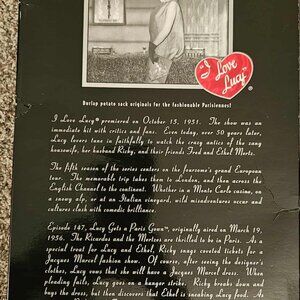 "I Love
Lucy"
®
Burlap potato sack originals for the fashionable Parisiennes!
I Love Lucy® premiered on October 15, 1951. The show was an
immediate hit with critics and fans. Even today, over 50 years later,
Lucy lovers tune in faithfully to watch the crazy antics of the zany
housewife, her husband Ricky, and their friends Fred and Ethel Mertz.
The fifth season of the series centers on the foursome's grand European
tour. The memorable trip takes them to London, and then across the
English Channel to the continent. Whether in a Monte Carlo casino, on
a snowy alp, or at an Italian vineyard, wild misadventures occur and
cultures clash with comedic brilliance.
Episode 147, Lucy Gets a Paris Gown™, originally aired on March 19,
1956. The Ricardos and the Mertzes are thrilled to be in Paris. As a
special treat for Lucy and Ethel, Ricky snags coveted tickets for a
Jacques Marcel fashion show. Of course, after seeing the designer's
clothes, Lucy vows that she will have a Jacques Marcel dress. When
pleading fails, Lucy goes on a hunger strike. Ricky breaks down and
buys the dress, but then discovers that Ethel is sneaking Lucy food. A